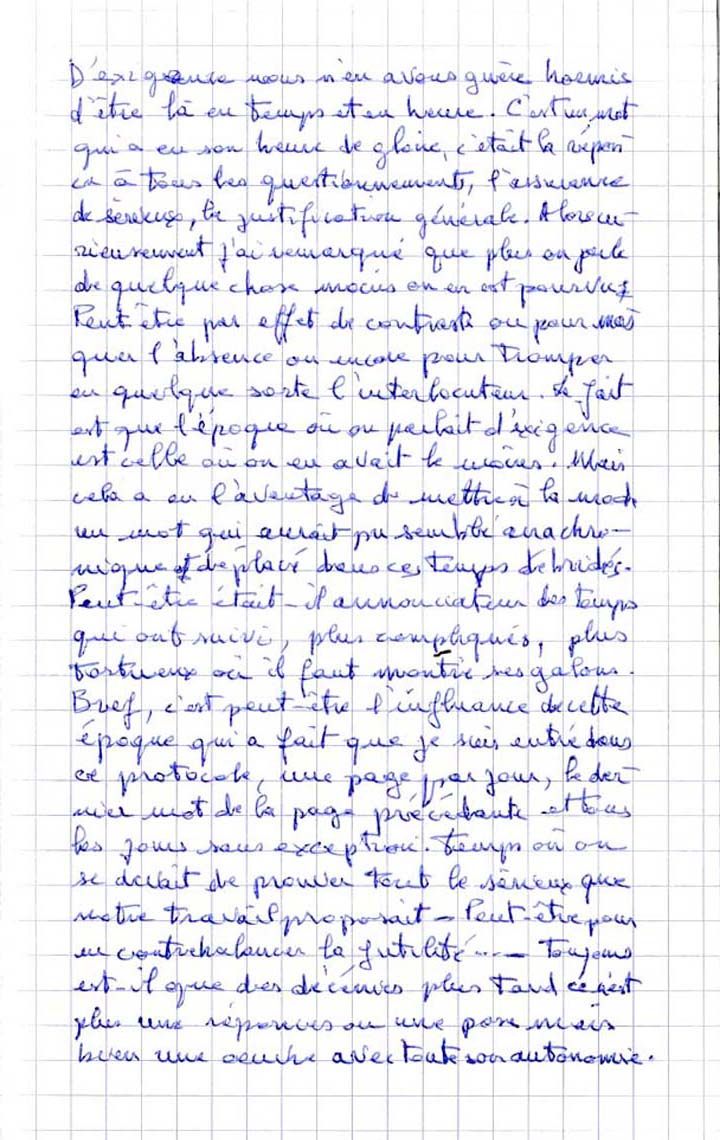 D'exigence nous n'en avons guère hormis
d'être là en temps et en heure. C'est un mot
qui a eu son heure de gloire, c'était la répon
ce à tous les questionnements, l'assurance
de sérieux, la justification générale. Alors cu-
rieusement j'ai remarqué que plus on parle
de quelque chose moins on en est pourvu
Peut-être par effet de contraste ou pour mas
quer l'absence ou encore pour tromper
en quelque sorte l'interlocuteur. Le fait
est que l'époque où on parlait d'exigence
est celle où on en avait le moins. Mais
cela a eu l'avantage de mettre à la mode
un mot qui aurait pu semblé anachro-
nique et déplacé dans ces temps débridés.
Peut-être était-il annonciateur des temps
qui ont suivi, plus compliqués, plus
tortueux où il faut montré ses galons.
Bref, c'est peut-être l'influance de cette
époque qui a fait que je suis entré dans
ce protocole, une page par jour, le der
nier mot de la page précédante et tous
les jours sans exception. Temps où on
se devait de prouver tout le sérieux que
notre travail proposait - Peut-être pour
en contrebalancer la futilité ... - Toujours
est-il que des décénies plus tard ce n'est
plus une réponses ou une pose mais
bien une oeuvre avec toute son autonomie.